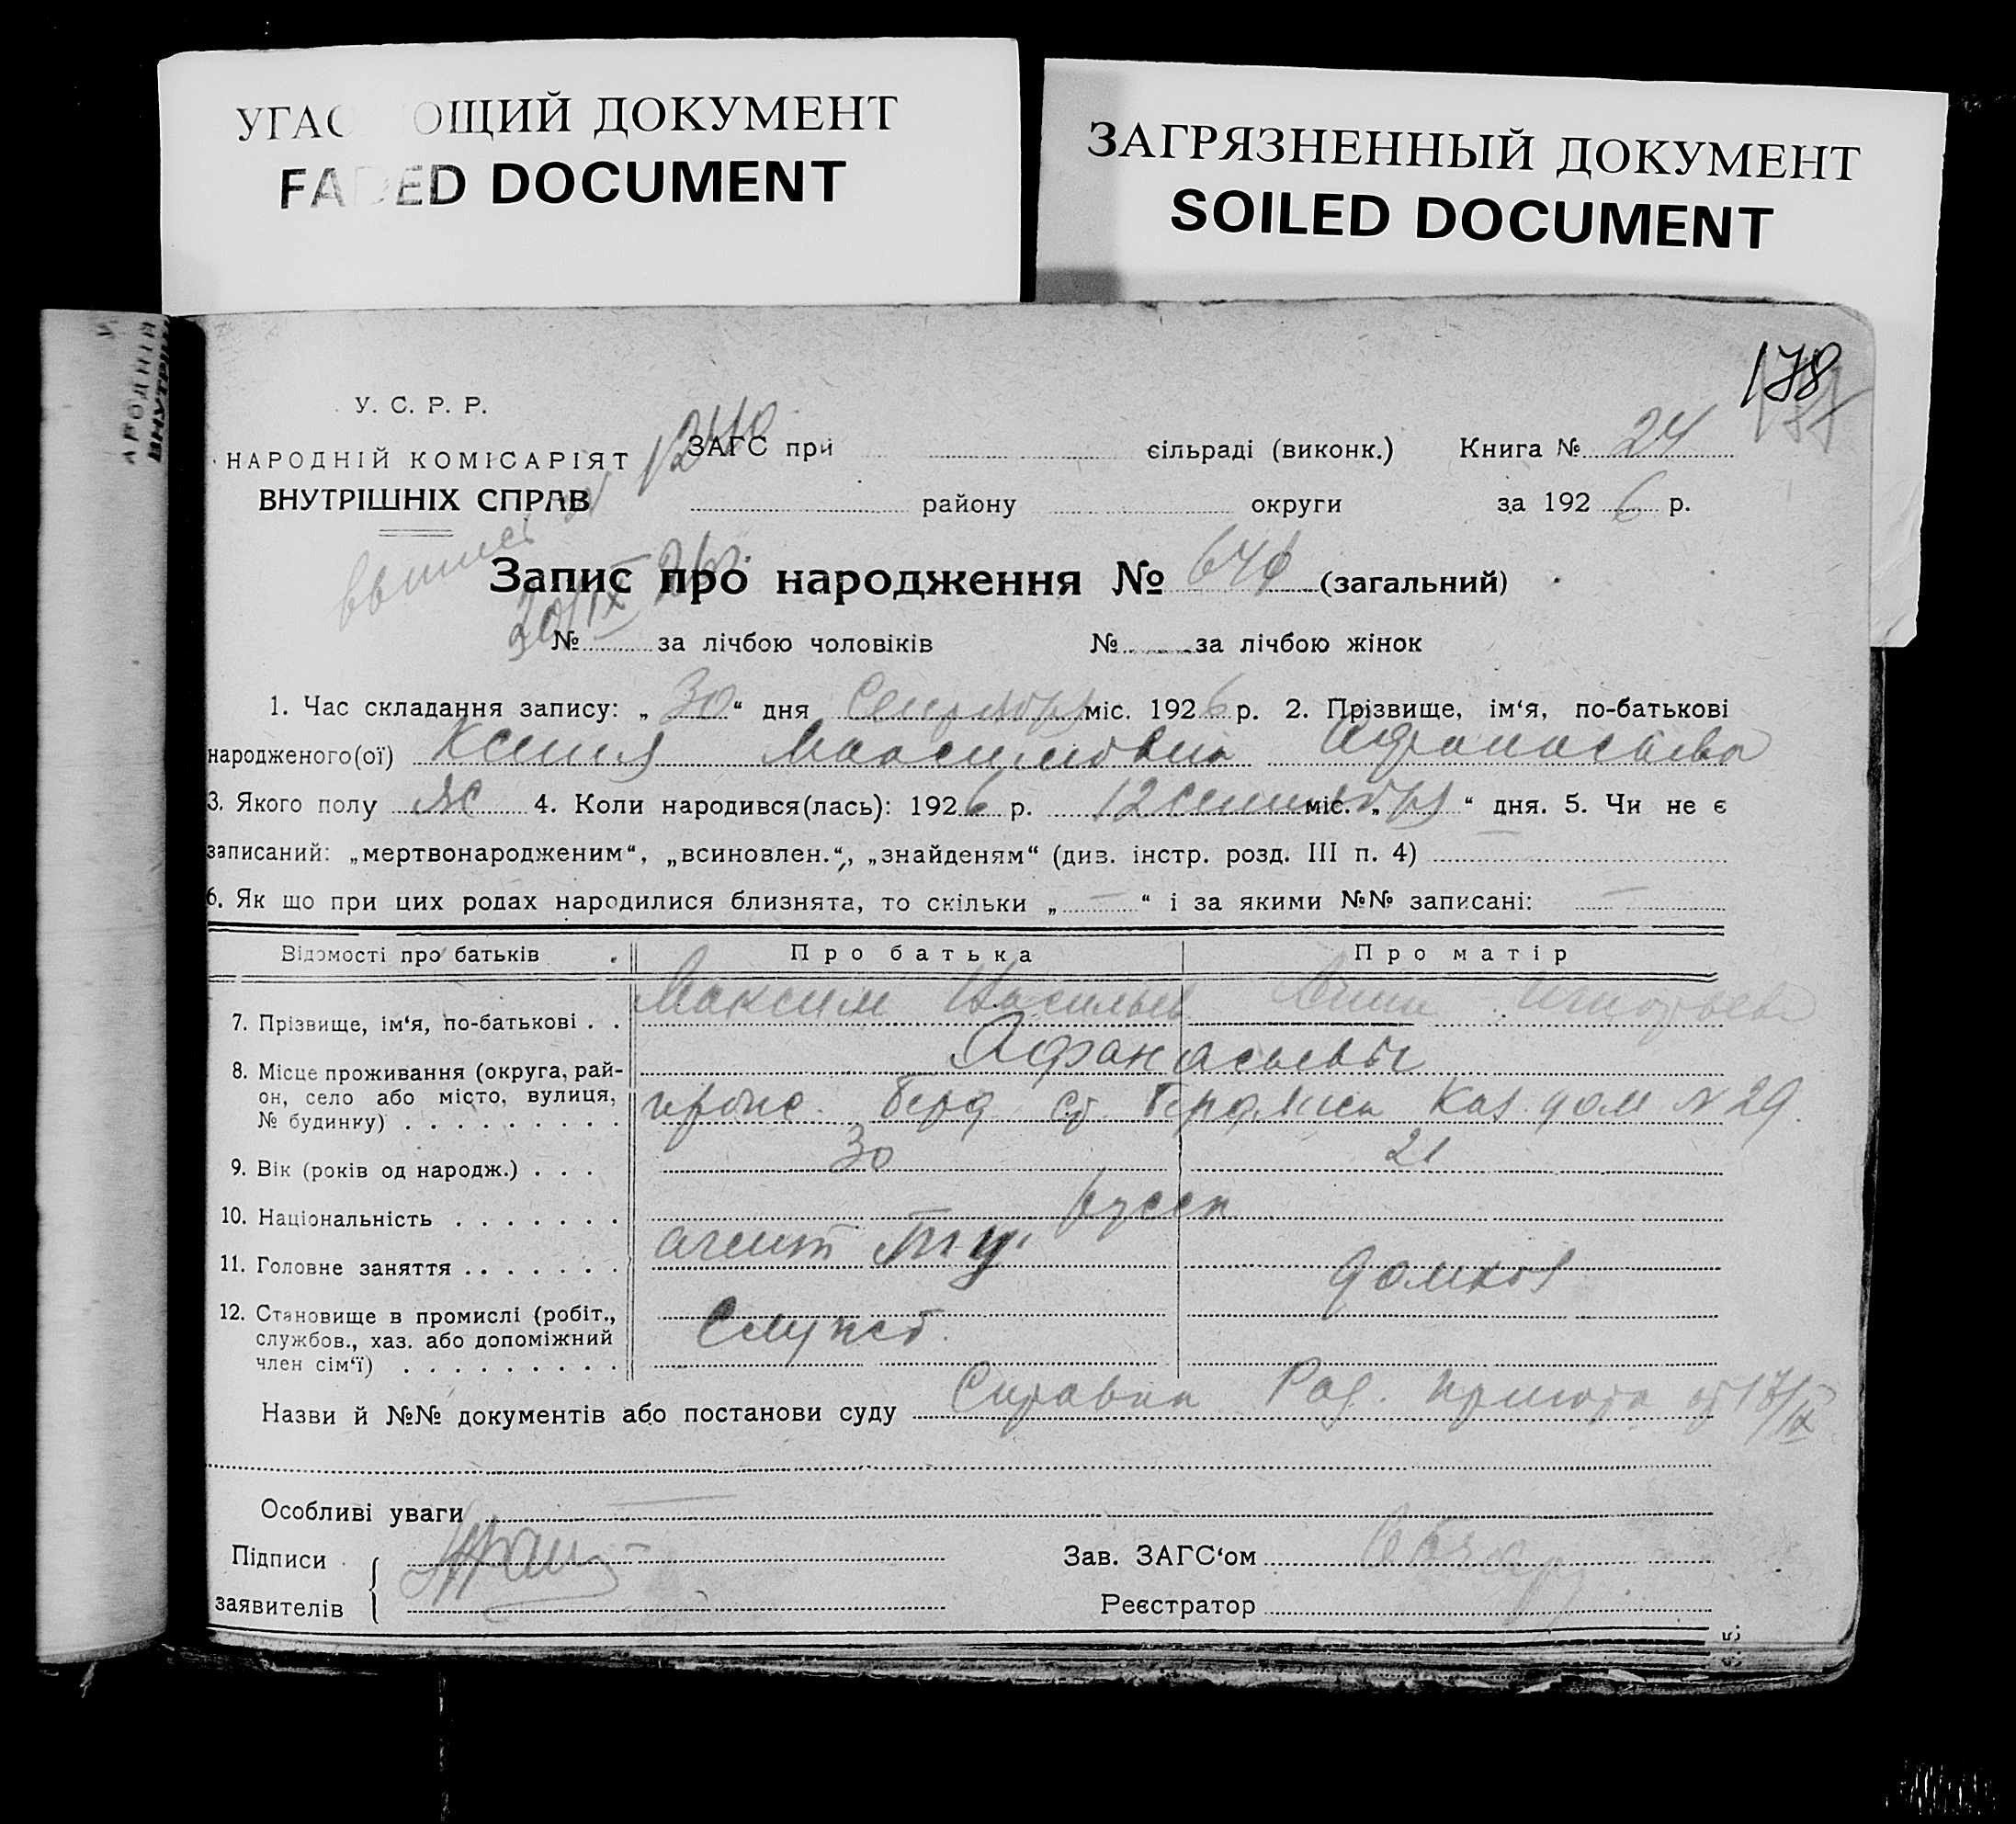 УГАС ОЩИЙ ДОКУМЕНТ
FADED DOCUMENT
ЗАГРЯЗНЕННЫЙ ДОКУМЕНТ
SOILED DOCUMENT
178
У. С. Р. Р.
НАРОДНІЙ КОМІСАРІЯТ
ВНУТРІШНІХ СПРАВ
ЗАГС при сільраді (виконк.) Книга № 24
району округи за 1926 р.
Запис про народження № (загальний)
30/IX 26 г.
№ за лічбою чоловіків № за лічбою жінок
1. Час складання запису: „ 30 “ дня Сентября міс. 1926 р. 2. Прізвище, ім‘я, по-батькові
народженого(ої) Ксения Максимовна Афанасьева
3. Якого полу ж 4. Коли народився(лась): 1926 р. 12 сентября міс. „ “ дня. 5. Чи не є
записаний: „мертвонародженим“, „всиновлен.“, „знайденям“ (див. інстр. розд. III п. 4)
6. Як що при цих родах народилися близнята, то скільки „ — “ і за якими №№ записані: —
Відомості про батьків Про батька Про матір
7. Прізвище, ім‘я, по-батькові . . Максим Васильев Анна
Афанасьевы
8. Місце проживання (округа, рай-
он, село або місто, вулиця,
№ будинку) . . . . . . . . . Каз. дом № 29.
9. Вік (років од народж.) . . . 30 21
10. Національність . . . . . . . русск
11. Головне заняття . . . . . . . агент домхоз
12. Становище в промислі (робіт.,
службов., хаз. або допоміжний
член сім‘ї) . . . . . . . . . Служб.
Назви й №№ документів або постанови суду Справка Род. приюта от 17/IX
Особливі уваги —
Підписи
заявителів
Зав. ЗАГС‘ом
Реєстратор